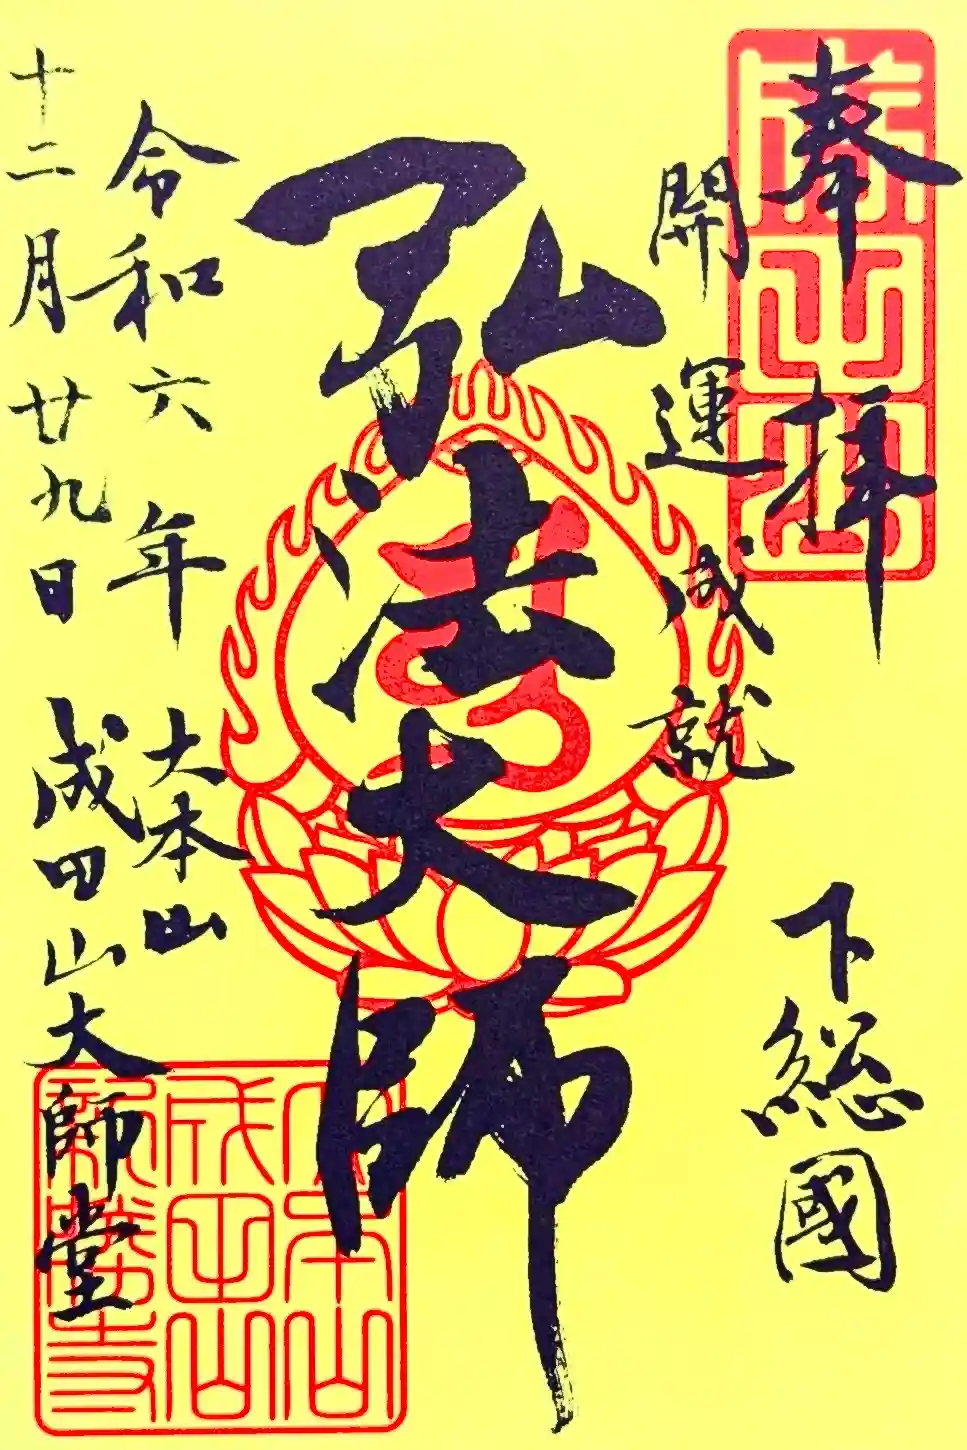 奉拝
開運成就
下総國
弘法大師
令和六年
十二月廿九日
大本山
成田山大師堂
大本山
成田山
新勝寺